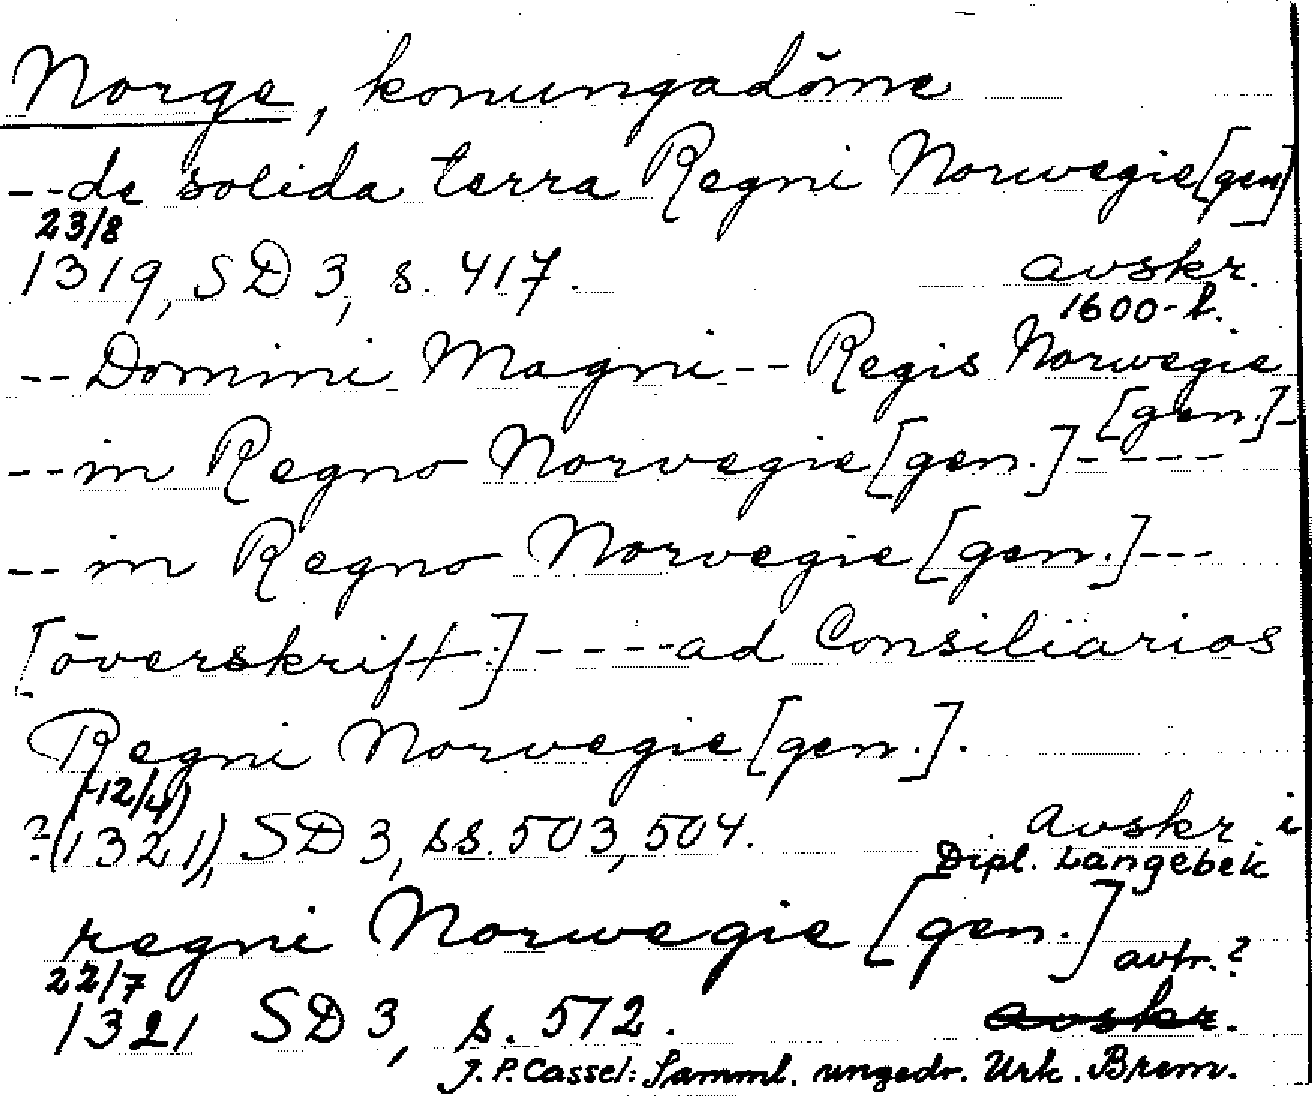 Norge, konungadöme
--de solida terra Regni Norwegie [gen]
23/8
1319, SD 3, s. 417. avskr.
1600-t.
--Domini Magni--Regis Norwegie
[gen.]-
--in Regno Norwegie [gen.]----
--in Regno Norvegie [gen.]---
[överskrift.]----ad Consiliarios
Regni Norwegie [gen.].
(-12/4)
?(1321), SD 3, ss. 503, 504. avskr i
Dipl. Langebek
regni Norwegie [gen.]
avtr.?
22/7
1321 SD 3, s. 572. avskr.
J. P. Cassel: Samml. ungedr. Urk. Brem.